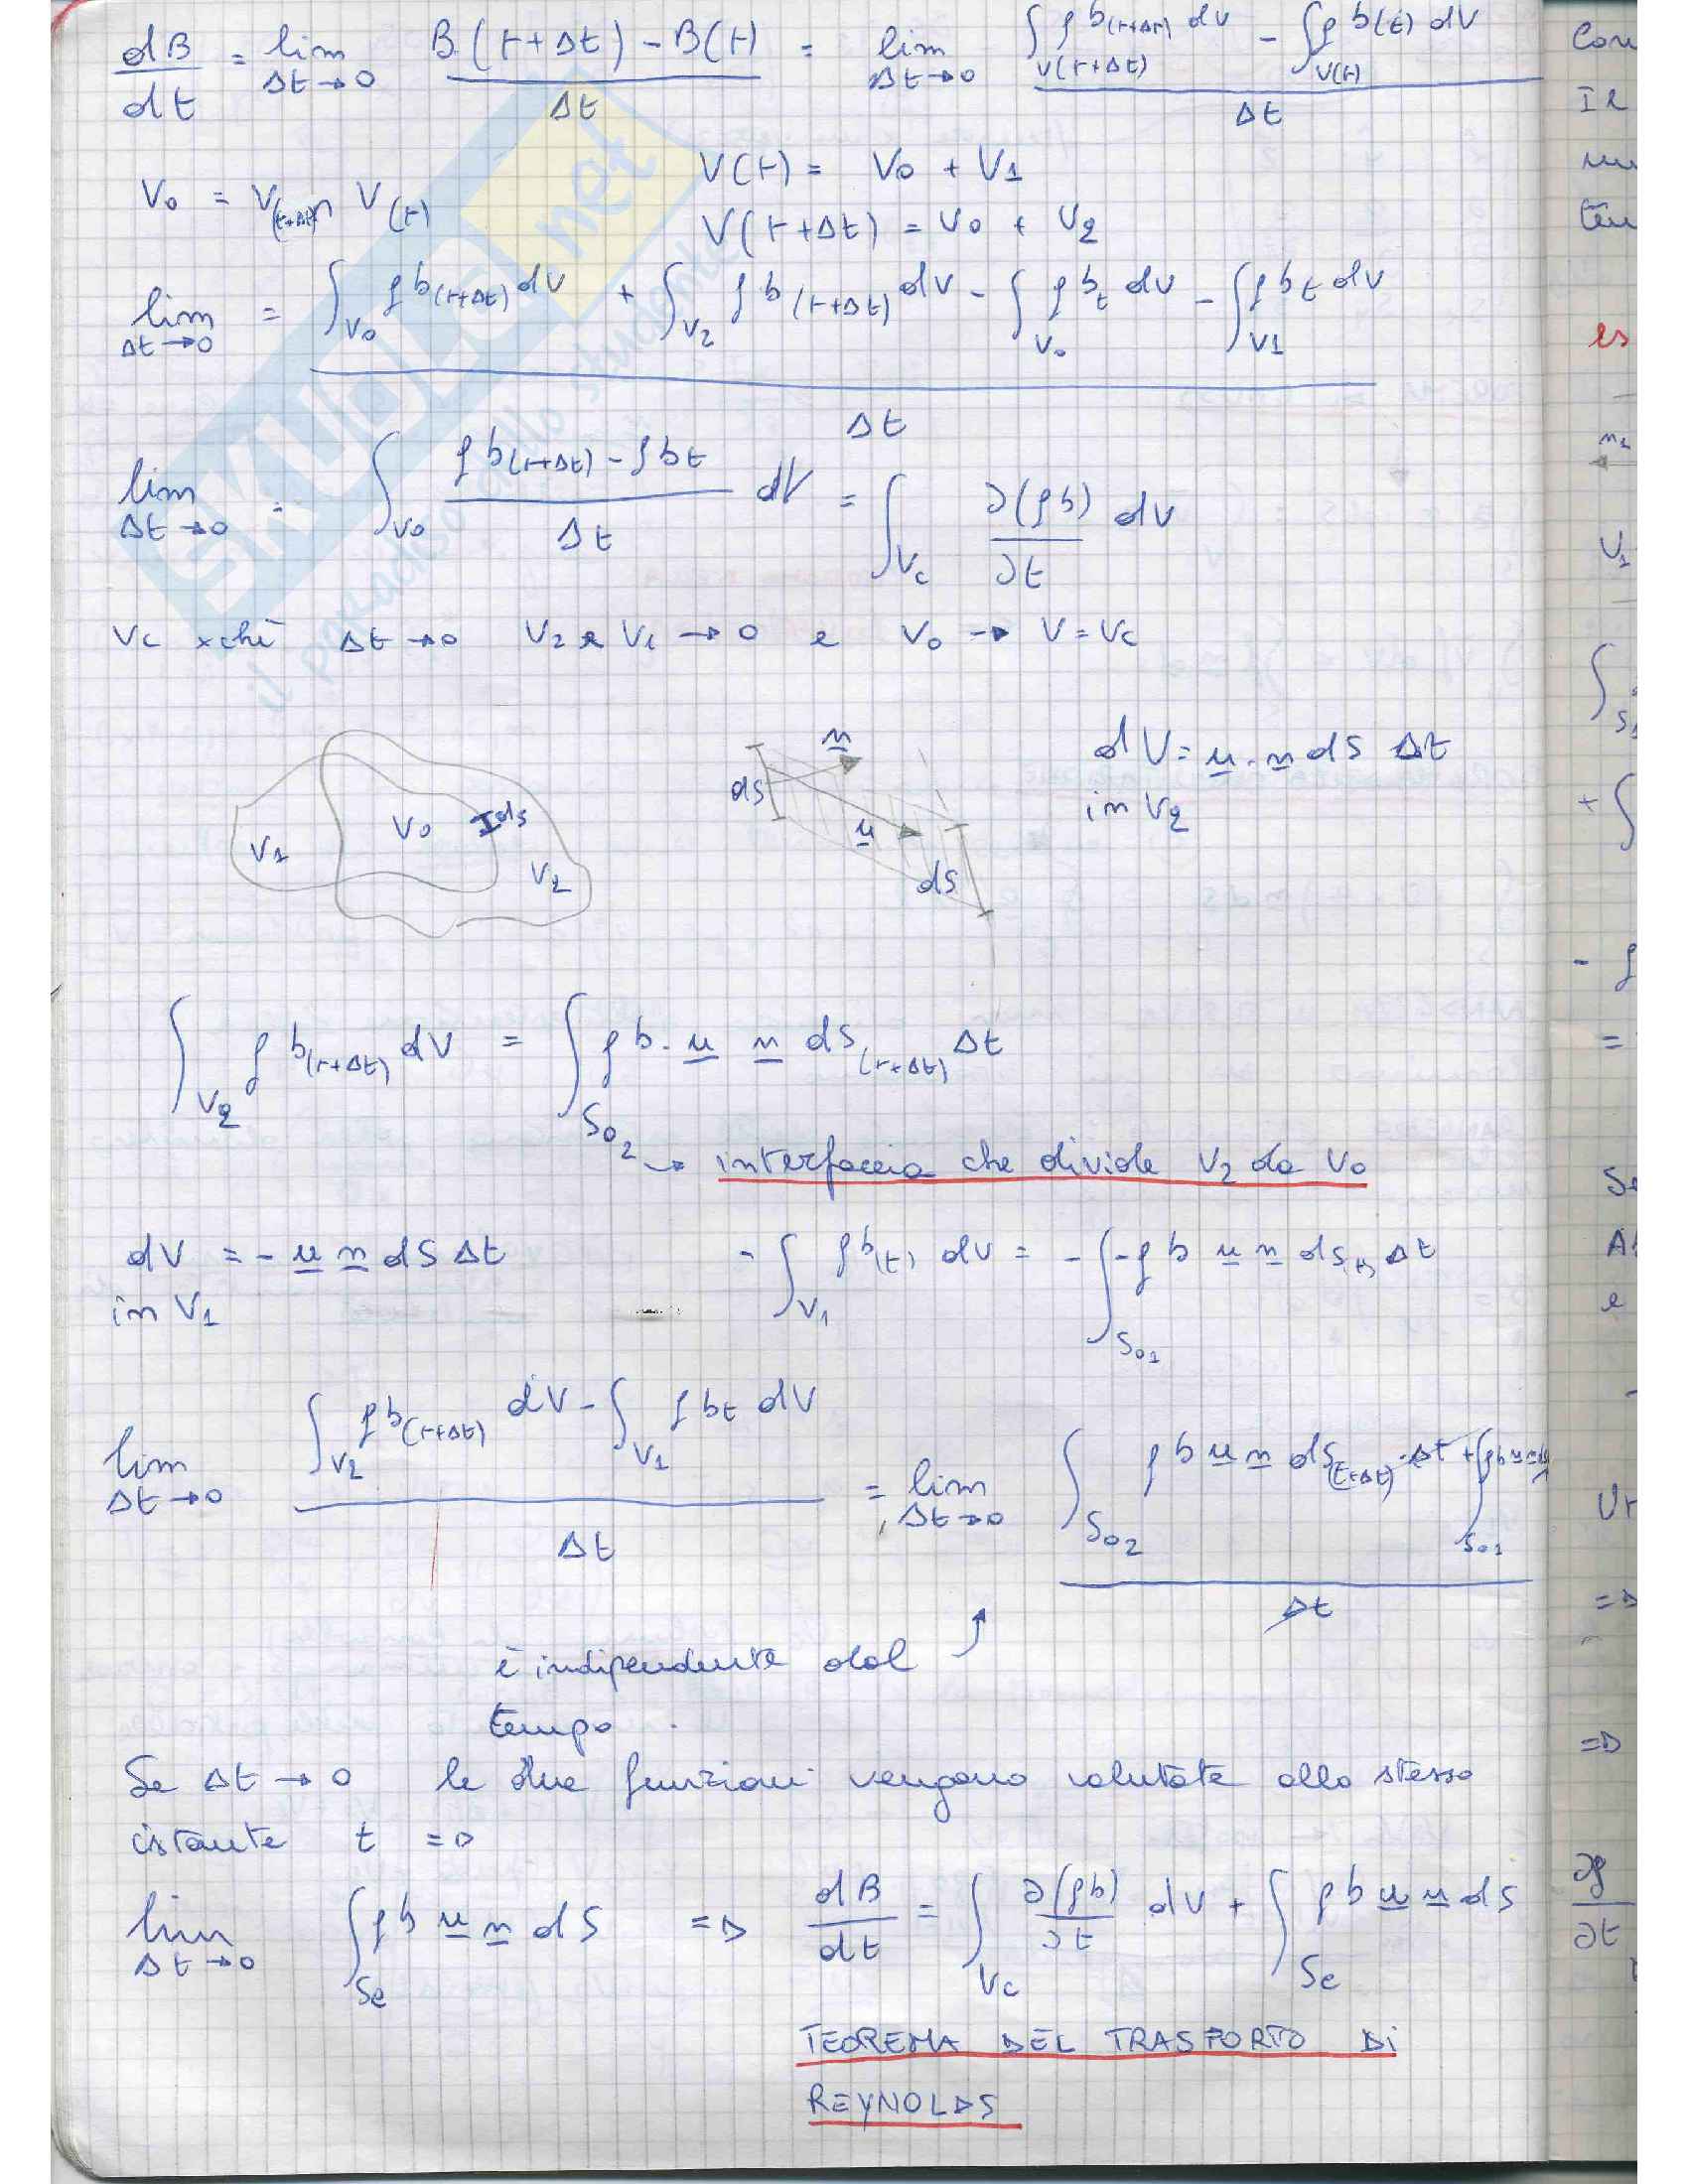 dB/dt = lim Δt→0 B(t+Δt) - B(t) / Δt = lim Δt→0 ∫V(t+Δt) ρ b(t+Δt) dV - ∫V(t) ρ b(t) dV / Δt
V0 = V(t+Δt) ∩ V(t)
V(t) = V0 + V1
V(t+Δt) = V0 + V2
lim Δt→0 = ∫V0 ρ b(t+Δt) dV + ∫V2 ρ b(t+Δt) dV - ∫V0 ρ bt dV - ∫V1 ρ bt dV / Δt
lim Δt→0 = ∫V0 ρ b(t+Δt) - ρ bt / Δt dV = ∫Vc ∂(ρb)/∂t dV
Vc xchè Δt→0 V2 e V1 → 0 e V0 → V = Vc
V1 V0 ds V2
ds n u ds
dV = u · n dS Δt
in V2
∫V2 ρ b(t+Δt) dV = ∫S02 ρ b · u n dS(t+Δt) Δt
→ interfaccia che divide V2 da V0
dV = - u n dS Δt
in V1
- ∫V1 ρ b(t) dV = - ∫S01 -ρ b u n dS(t) Δt
lim Δt→0 ∫V2 ρ b(t+Δt) dV - ∫V1 ρ bt dV / Δt = lim Δt→0 ∫S02 ρ b u n dS(t+Δt) · Δt + ∫S01 ρ b u n ds / Δt
è indipendente dal
tempo
Se Δt → 0 le due funzioni vengono valutate allo stesso
istante t =>
lim Δt→0 ∫Sc ρ b u n dS => dB/dt = ∫Vc ∂(ρb)/∂t dV + ∫Sc ρ b u n dS
TEOREMA DEL TRASPORTO Di
REYNOLDS
SKUOLA.net
il paradiso dello studente